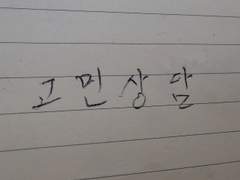 고민상담